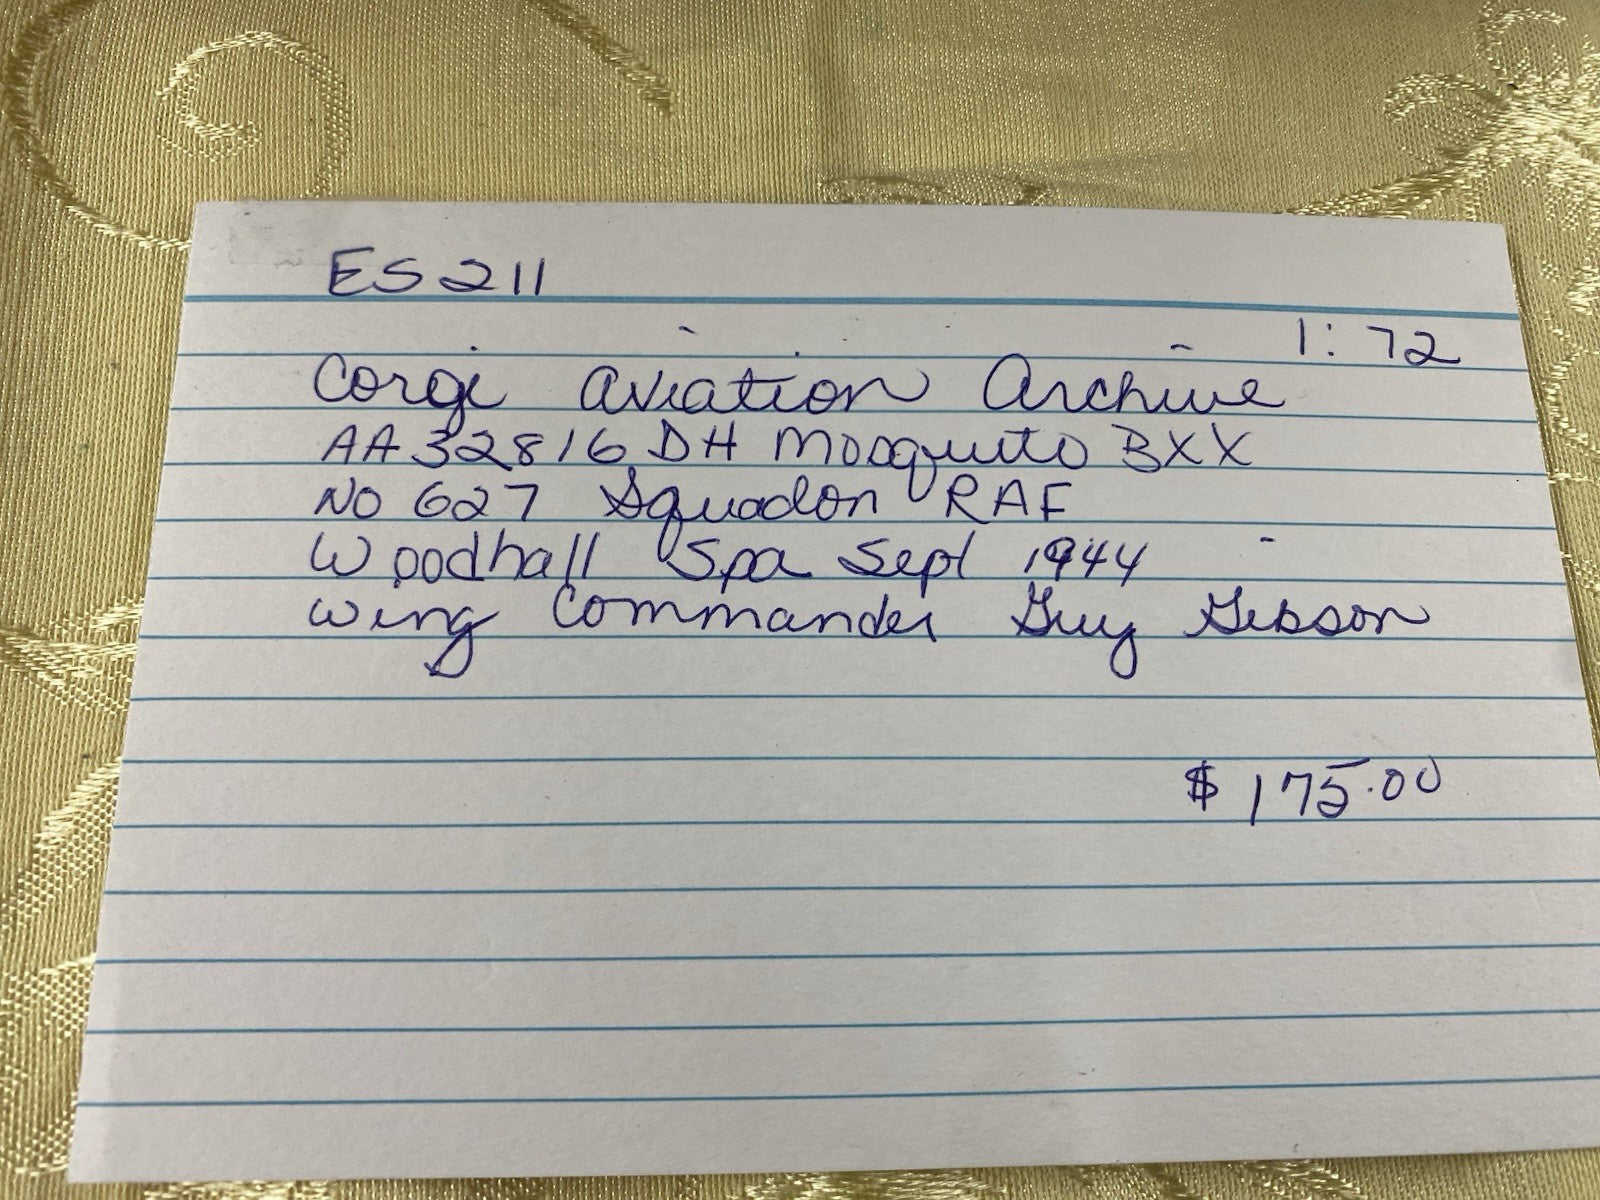 ES 211
1:72
Corgi Aviation Archive
AA32816 DH Mosquito BXX
NO 627 Squadon RAF
Woodhall Spa Sept 1944
Wing Commander Guy Gibson
$175.00